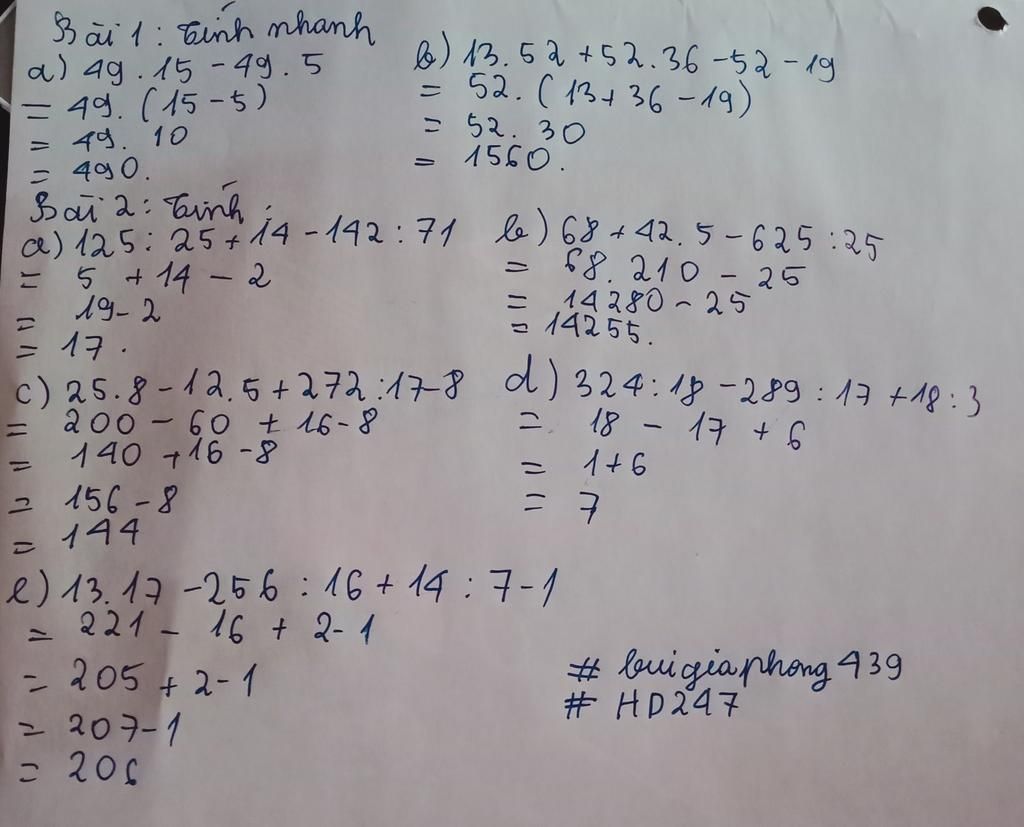 Bài 1: Tính nhanh
a) 49.15 - 49.5
= 49.(15 - 5)
= 49. 10
= 490.
b) 13.52 + 52.36 - 52 - 19
= 52.(13 + 36 - 19)
= 52. 30
= 1560.
Bài 2: Tính
a) 125 : 25 + 14 - 142 : 71
= 5 + 14 - 2
= 19 - 2
= 17.
b) 68 + 42.5 - 625 : 25
= 68. 210 - 25
= 14280 - 25
= 14255.
c) 25.8 - 12.5 + 272 : 17 - 8
= 200 - 60 + 16 - 8
= 140 + 16 - 8
= 156 - 8
= 144
d) 324 : 18 - 289 : 17 + 18 : 3
= 18 - 17 + 6
= 1 + 6
= 7
e) 13.17 - 256 : 16 + 14 : 7 - 1
= 221 - 16 + 2 - 1
= 205 + 2 - 1
= 207 - 1
= 206
# buigiaphong439
# HD247